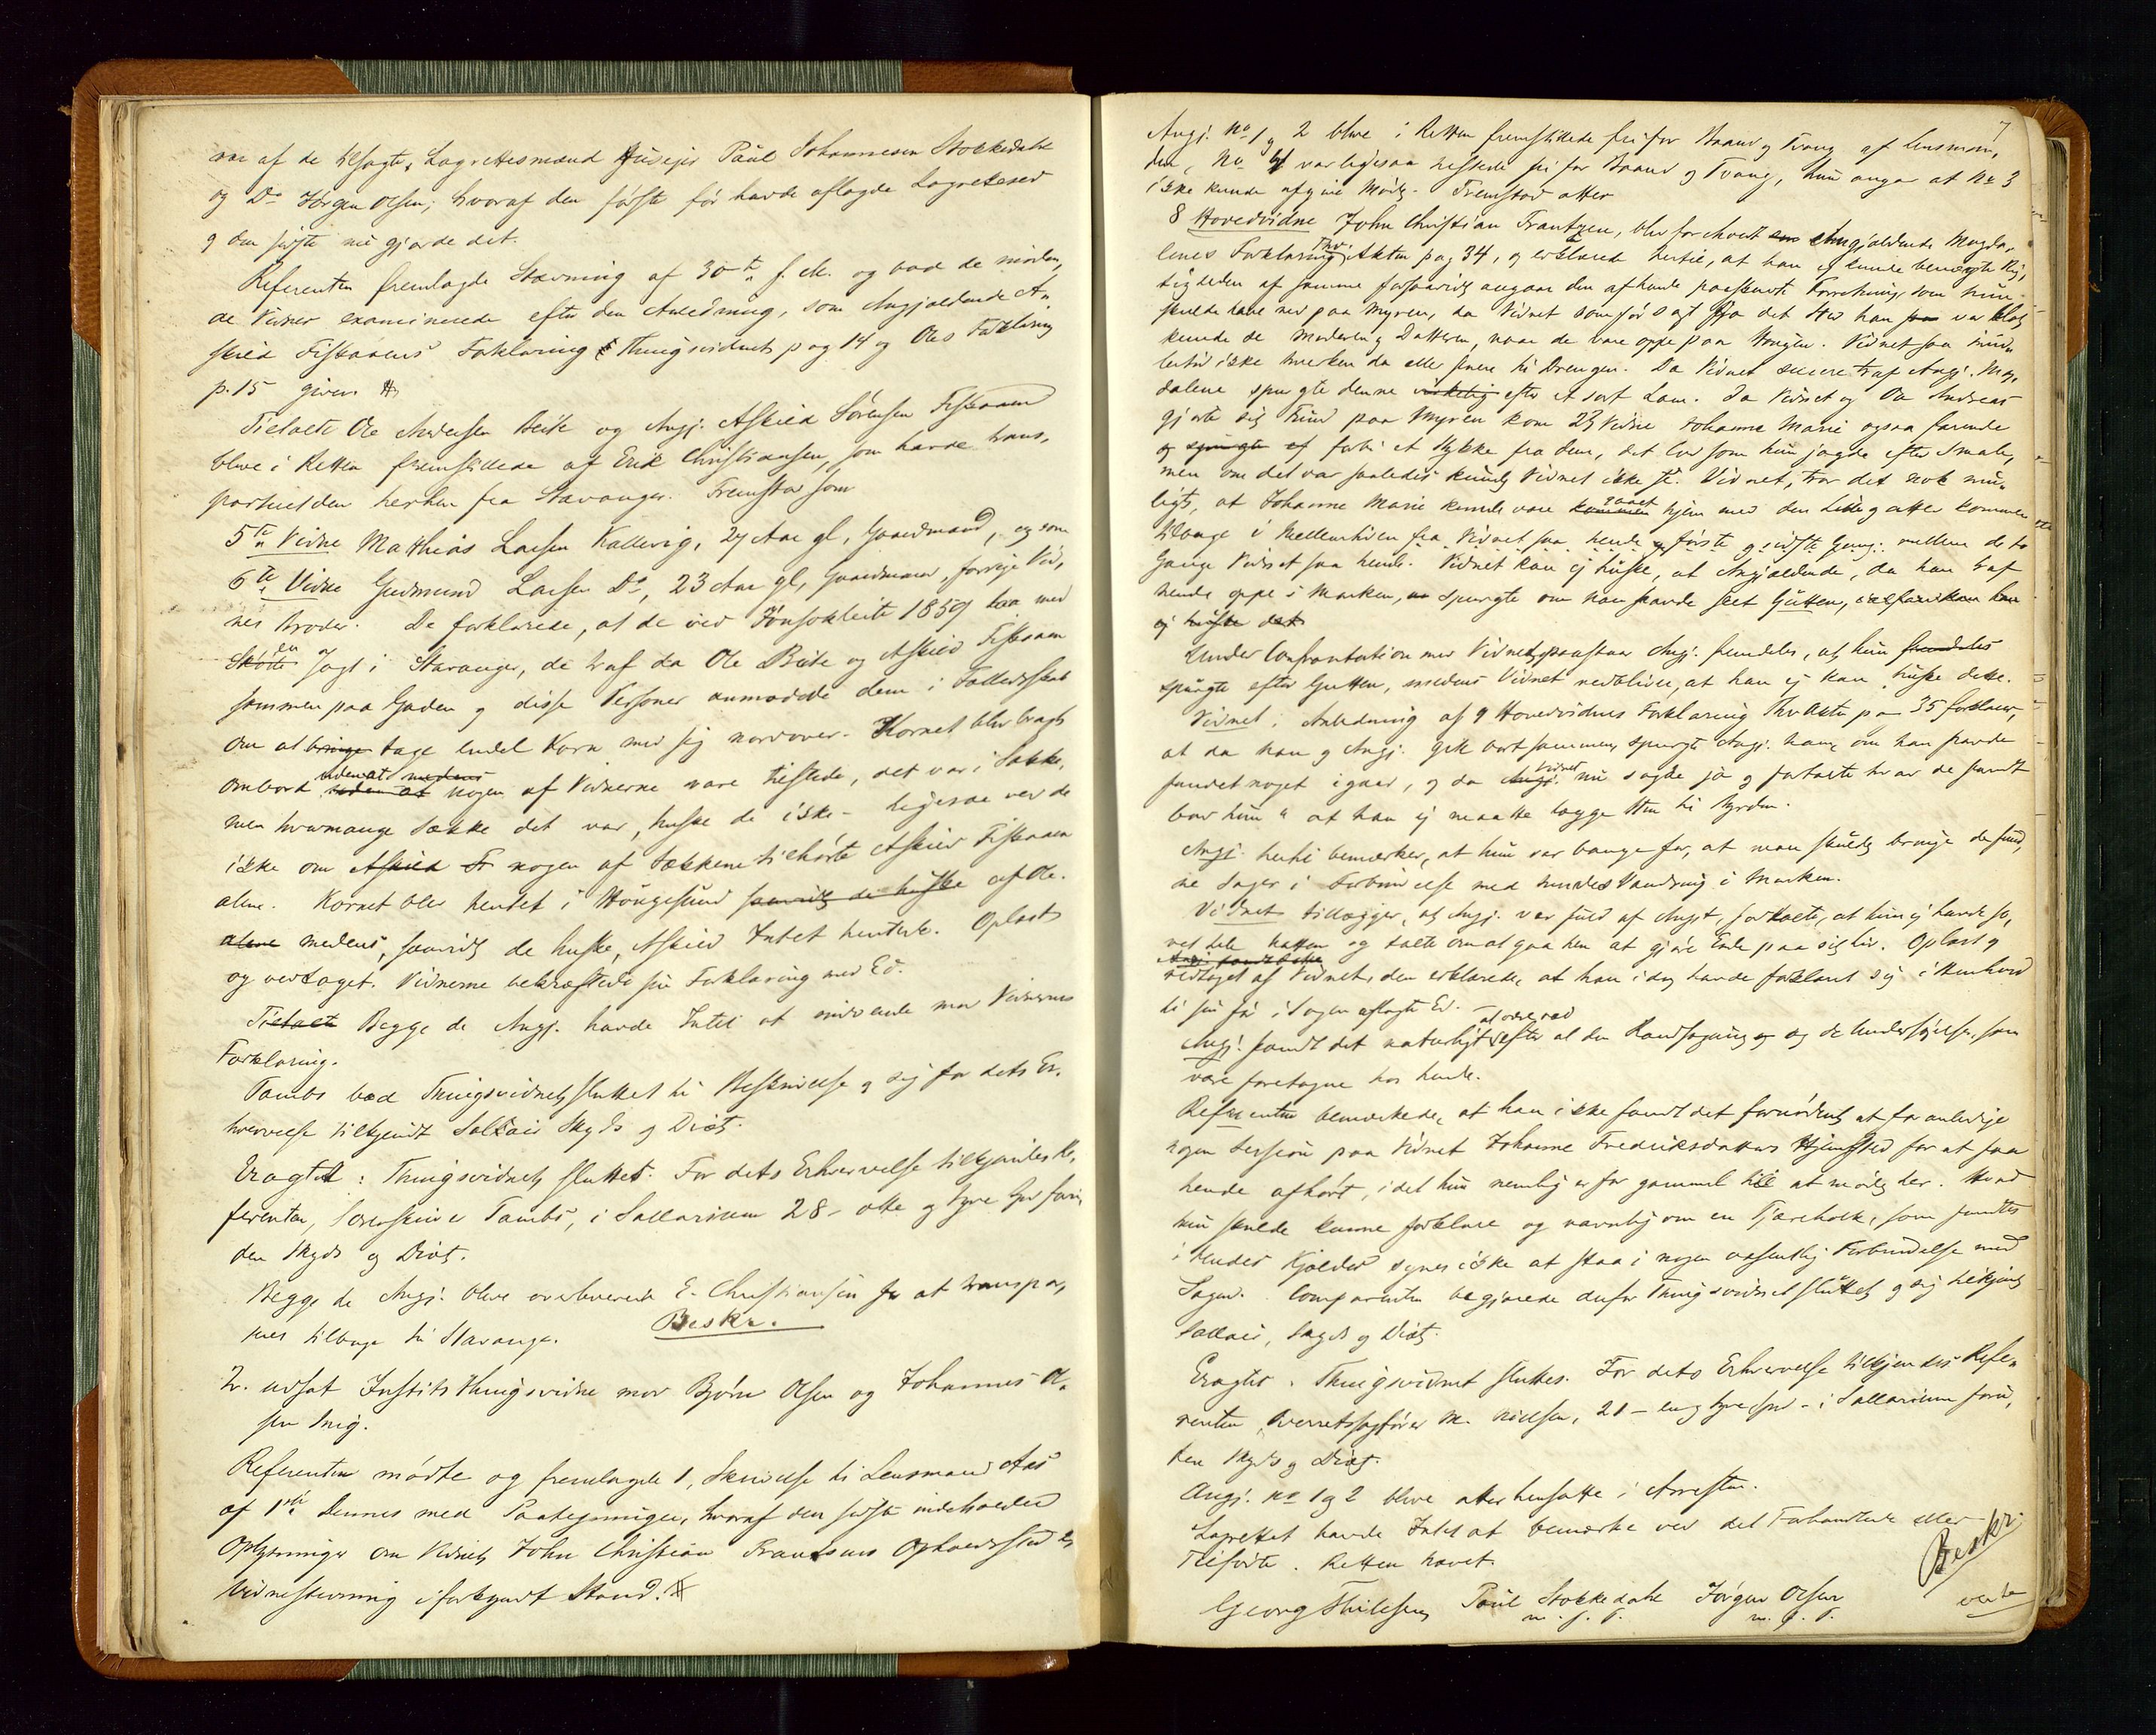 var af de tilsagte Lagrettesmænd Huseier Paul Johannesen Stokkedahl
og Do Jørgen Olsen; hvoraf den første før havde aflagde Lagretteeed
og den sidste nu gjorde det.
Referenten fremlagde Stævning af 30te f. M. og bad de mødende
Vidner examinerede efter den Anledning, som Angjældende As-
kild Fiskaaens Forklaring Thingsvidnets pag 14 og Oles Forklaring
p. 15 giver.
Tiltalte Ole Andersen Beite og Angj. Askild Sørensen Fiskaaen
bleve i Retten fremstillede af Erik Christiansen, som havde trans-
porteret dem herhen fra Stavanger. Fremstod som
5te Vidne Matthias Larsen Kallevig, 27 Aar gl, Gaardmand, og som
6te Vidne Gudmund Larsen Do, 23 Aar gl, Gaardmand, forrige Vid-
nes Broder. De forklarede, at de ved Jonsokleite 1859 laa med
en Jagt i Stavanger, de traf da Ole Beite og Askild Fiskaaen
sammen paa Gaden og disse Personer anmodede dem i Fælledsskab
om at bringe tage endel Korn med sig nordover. Kornet blev bragt
ombord uden at nogen af Vidnerne vare tilstede, det var i Sække,
men hvormange Sække det var, huske de ikke - ligesaa ved de
ikke om Askild nogen af Sækkene tilhørte Askild Fiskaaen
alene. Kornet blev hentet i Høugesund saavidt de huske af Ole
alene medens, saavidt de huske, Askild Intet hentede. Oplæst
og vedtaget. Vidnerne bekræftede sin Forklaring med Ed.
Tiltalte Begge de Angj. havde Intet at indvende mod Vidnernes
Forklaring.
Tambs bad Thingsvidnet sluttet til Beskrivelse og sig for dets Er-
hvervelse tilkjendt Sallair Skyds og Diæt.
Eragtet: Thingsvidnet sluttet. For dets Erhvervelse tilkjendes Re-
ferenten, Sorenskriver Tambs, i Sallarium 28 - otte og tyve Spd foru-
den Skyds og Diæt.
Begge de Angj. bleve overleverede E. Christiansen for at transpor-
teres tilbage til Stavanger.
Beskr.
2. udsat Justits Thingsvidne mod Bjørn Olsen og Johannes Ol-
sen Snig.
Referenten mødte og fremlagde 1, Skrivelse til Lensmand Aas
af 1ste Dennes med Paategninger, hvoraf den sidste indeholder
Oplysninger om Vidnet John Christian Frantzens Opholdssted
Vidnestevning i forkyndt Stand.
7
Angj. No 1 og 2 bleve i Retten fremstillede fri for Baand og Tvang af Lensmanden,
No 4 var ligesaa tilstede fri for Baand og Tvang, hun angav at No 3
ikke kunde afgive Møde. Fremstod atter
8 Hovedvidne John Christian Frantzen, blev foreholdt Angjældende Magda-
lenes Forklaring Thv. Akten pag 34, og erklærede hertil, at han ej kunde benægte Rig-
tigheden af samme forsaavidt angaar den af hende paaskudte Forretning som hun
skulde have ved paa Myren, da Vidnet som før sagt fra det Sted han var blot
kunde se Moderen og Datteren, naar de vare oppe paa Haugen. Vidnet saa imid-
lertid ikke hverken da eller senere til Drengen. Da Vidnet senere traf Angj. Mag-
dalene spurgte denne virkelig efter et sort Lam. Da Vidnet og Ole Andreas
gjorde sig Fund paa Myren kom 23 Vidne Johanne Marie ogsaa farende
forbi et Stykke fra dem, det lod som hun jagde efter Smale,
men om det var saaledes kunde Vidnet ikke se. Vidnet, tror det nok mu-
ligt, at Johanne Marie kunde være kommen gaaet hjem med den Lille og atter kommen
tilbage i Mellemtiden fra Vidnet saa hende første og sidste Gang: mellem de to
Gange Vidnet saa hende. Vidnet kan ej huske, at Angjældende, da han traf
hende oppe i Marken, spurgte om han havde seet Gutten,
ej huske det
Under Confrontation med Vidnet, paastaar Angj. fremdeles, at hun fremdeles
spurgte efter Gutten, medens Vidnet vedbliver, at han ej kan huske dette.
Vidnet i Anledning af 9 Hovedvidnes Forklaring Thv Akten pag 35 forklarer,
at da han og Angj. gik bort sammen, spurgte Angj. ham, om han havde
fundet noget igaar, og da Vidnet nu sagde ja og fortalte hvad de fandt
bad hun at han ej maatte lægge Sten til Byrden.
Angj. hertil bemærker, at hun var bange for, at man skulde bringe de fund-
ne Sager i Forbindelse med hendes Vandring i Marken.
Vidnet tillægger, at Angj. var fuld af Angst, fortalte, at hun ej havde so-
vet hele Natten og talte om at gaa hen at gjøre Ende paa sit Liv. Oplæst og
vedtaget af Vidnet, der erklærede, at han idag havde forklaret sig i Henhold
til sin før i Sagen aflagte Ed.
Angj. fandt det naturligt at være ræd efter al den Randsagning og de Undersøgelser, som
vare foretagne hos hende.
Referenten bemærkede, at han ikke fandt det fornødent at foranledige
nogen Session paa Vidnet Johanne Fredriksdatters Hjemsted for at faa
hende afhørt, idet hun nemlig er for gammel til at møde her. Hvad
hun skulde kunne forklare og navnlig om en Tjæreholk, som fandtes
i hendes Kjælder synes ikke at staa i nogen væsentlig Forbindelse med
Sagen. Comparenten begjærede derfor Thingsvidnet sluttet og sig tilkjendt
Sallair, Skyds og Diæt.
Eragtet. Thingsvidnet sluttes. For dets Erhvervelse tilkjendes Refe-
renten, Overretssagfører M. Nielsen, 21 - en og tyve Spd - i Sallarium foru-
den Skyds og Diæt.
Angj. No 1 og 2 bleve atter hensatte i Arresten.
Lagrettet havde Intet at bemærke ved det Forhandlede eller
Tilførte. Retten hævet.
Beskr.
Georg Thilesen Paul Stokkedahl Jørgen Olsen
m. f. P. m. f. P.